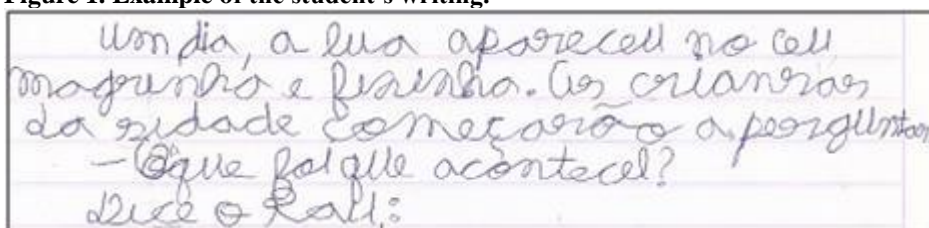 Figure 1. Example of the student's writing.
Um dia, a lua apareceu no ceu
magrinha e fininha. As crianças
da sidade começarão a perguntar
– O que foi que aconteceu?
Dice o Raul: